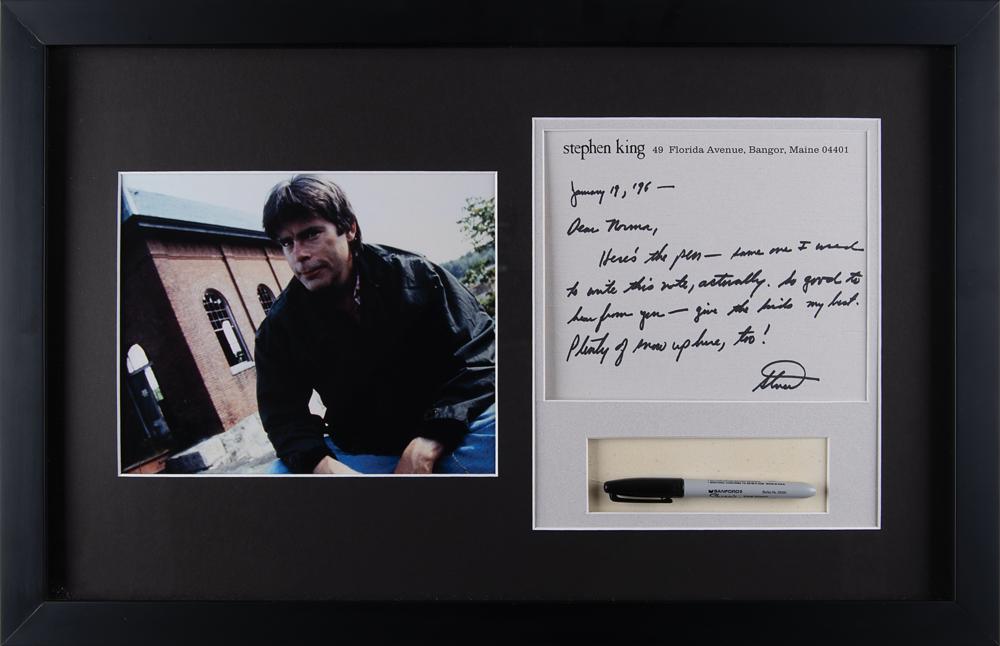 stephen king 49 Florida Avenue, Bangor, Maine 04401
January 19, '96 —
Dear Norma,
Here's the pen — same one I used
to write this note, actually. So good to
hear from you — give the kids my best.
Plenty of snow up here, too!
Steve
SANFORD®